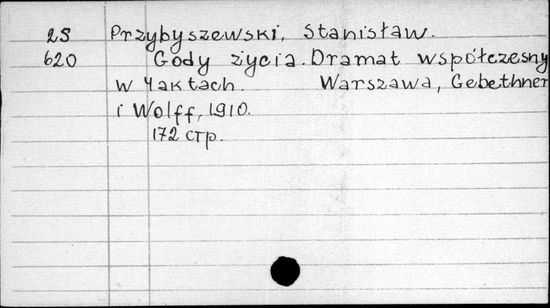 25 Przybyszewski, Stanisław.
620 Gody życia. Dramat współczesny
w 4 aktach. Warszawa, Gebethner
i Wolff, 1910.
172 стр.